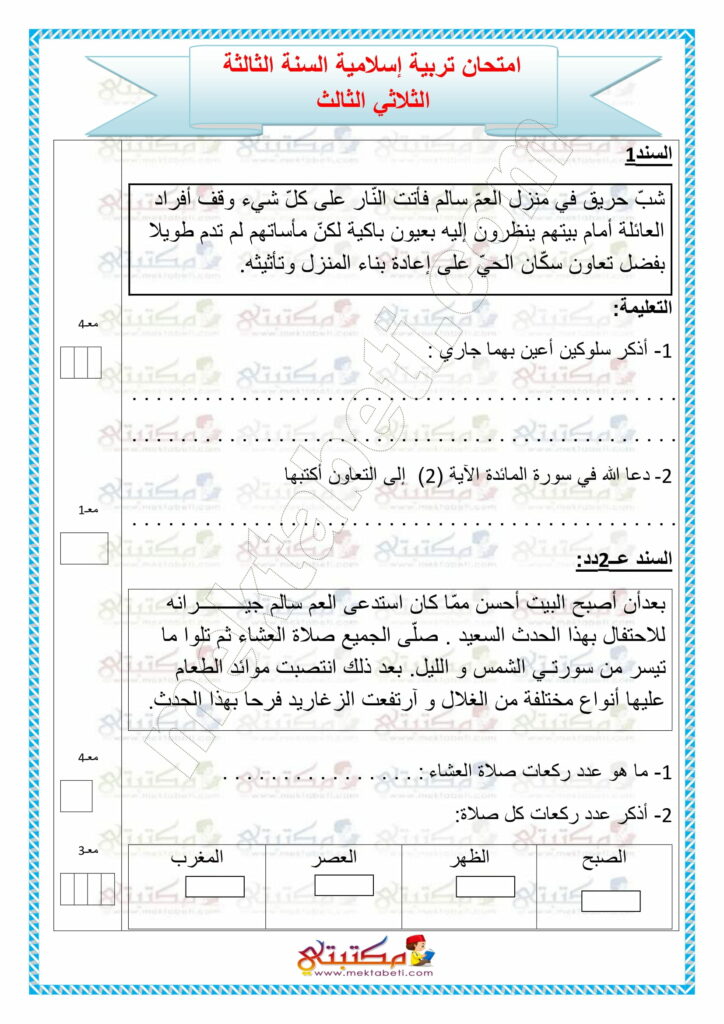 امتحان تربية إسلامية السنة الثالثة
الثلاثي الثالث
السند1
شبّ حريق في منزل العمّ سالم فأتت النّار على كلّ شيء وقف أفراد
العائلة أمام بيتهم ينظرون إليه بعيون باكية لكنّ مأساتهم لم تدم طويلا
بفضل تعاون سكّان الحيّ على إعادة بناء المنزل وتأثيثه.
التعليمة:
معـ4
1- أذكر سلوكين أعين بهما جاري :
. . . . . . . . . . . . . . . . . . . . . . . . . . . . . . . . . . . . . . . .
. . . . . . . . . . . . . . . . . . . . . . . . . . . . . . . . . . . . . . . .
2- دعا الله في سورة المائدة الآية (2) إلى التعاون أكتبها
معـ1
. . . . . . . . . . . . . . . . . . . . . . . . . . . . . . . . . . . . . . . .
السند عــ2دد:
بعدأن أصبح البيت أحسن ممّا كان استدعى العم سالم جيـــــــرانه
للاحتفال بهذا الحدث السعيد . صلّى الجميع صلاة العشاء ثم تلوا ما
تيسر من سورتي الشمس و الليل. بعد ذلك انتصبت موائد الطعام
عليها أنواع مختلفة من الغلال و آرتفعت الزغاريد فرحا بهذا الحدث.
معـ4
1- ما هو عدد ركعات صلاة العشاء : . . . . . . . . . . . . . . . .
2- أذكر عدد ركعات كل صلاة:
معـ3
الصبح الظهر العصر المغرب
مكتبتي
www.mektabeti.com
mektabeti.com